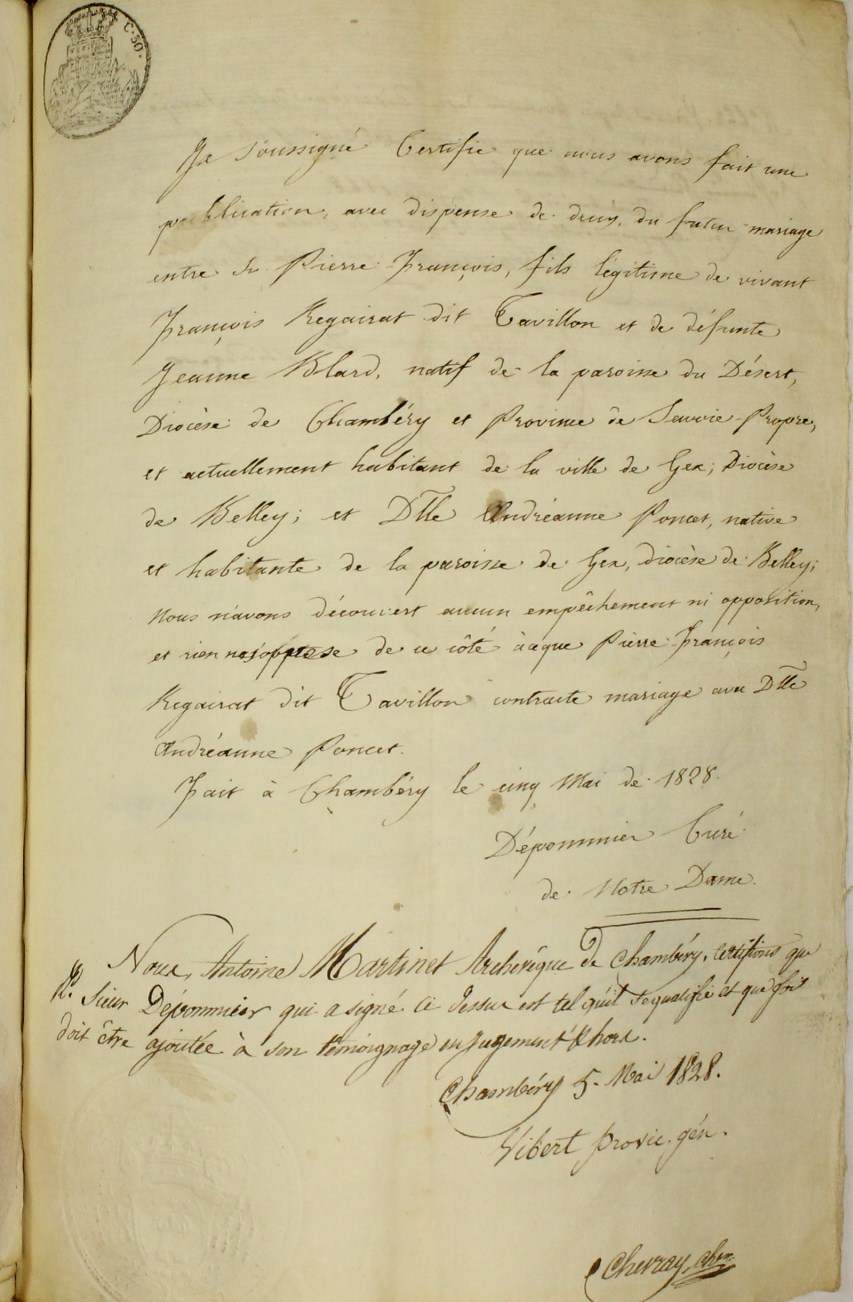 C. 50.
Je soussigné Certifie que nous avons fait une
publication, avec dispense de deux, du futur mariage
entre Sr Pierre François, fils légitime de vivant
François Regairat dit Tavillon et de défunte
Jeanne Blard, natif de la paroisse du Désert,
Diocèse de Chambéry et Province de Savoie-Propre,
et actuellement habitant de la ville de Gex; Diocèse
de Belley; et Dlle Andréanne Poncet, native
et habitante de la paroisse de Gex, diocèse de Belley;
Nous n'avons découvert aucun empêchement ni opposition,
et rien ne s'oppose de ce côté à ce que Pierre-François
Regairat dit Tavillon contracte mariage avec Dlle
Andréanne Poncet.
Fait à Chambéry le cinq Mai de 1828.
Dépommier Curé
de Notre Dame.
Nous, Antoine Martinet Archevêque de Chambéry, Certifions que
Rd. Sieur Dépommier qui a signé ci dessus est tel qu'il se qualifie et que foi
doit être ajoutée à son témoignage en jugement & hors.
Chambéry 5. Mai 1828.
Vibert provic. gén.
Chevray,